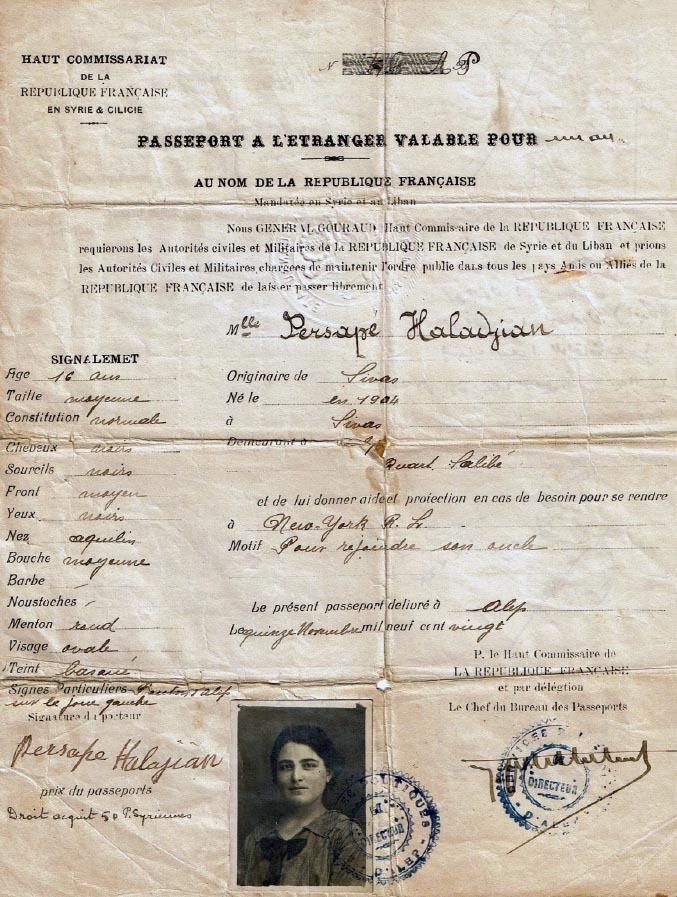 HAUT COMMISSARIAT
DE LA
REPUBLIQUE FRANÇAISE
EN SYRIE & CILICIE
N
PASSEPORT A L'ETRANGER VALABLE POUR un an
AU NOM DE LA REPUBLIQUE FRANÇAISE
Mandatée en Syrie et au Liban
Nous GENERAL GOURAUD Haut Commissaire de la REPUBLIQUE FRANÇAISE
requierons les Autorités civiles et Militaires de la REPUBLIQUE FRANÇAISE de Syrie et du Liban et prions
les Autorités Civiles et Militaires chargées de maintenir l'ordre public dans tous les pays Amis ou Alliés de la
REPUBLIQUE FRANÇAISE de laisser passer librement
Mlle Persapé Haladjian
SIGNALEMET
Age 16 ans
Taille moyenne
Constitution normale
Cheveux noirs
Sourcils noirs
Front moyen
Yeux noirs
Nez aquilin
Bouche moyenne
Barbe
Noustoches
Menton rond
Visage ovale
Teint basané
Signes Particuliers Bouton d'alep
sur la joue gauche
Signature du porteur
Persape Halajian
prix du passeports
Droit acquit 50 P. Syriennes
Originaire de Sivas
Né le en 1904
à Sivas
Demeurant à
Quart. Salibé
et de lui donner aide et protection en cas de besoin pour se rendre
à New-York
Motif Pour rejoindre son oncle
Le présent passeport delivré à Alep
Le quinze Novembre mil neuf cent vingt
P. le Haut Commissaire de
LA REPUBLIQUE FRANÇAISE
et par délégtion
Le Chef du Bureau des Passeports
DIRECTEUR
D'ALEP
DIRECTEUR
D'ALEP